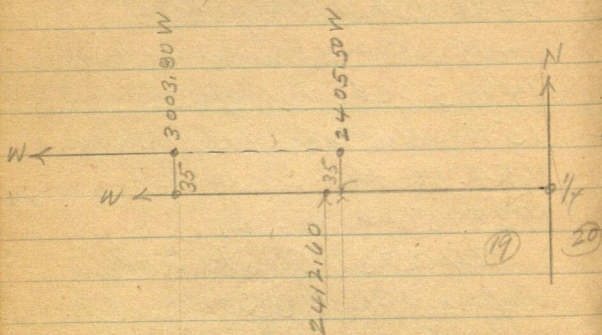 3003.80 W
2405.50 W
N
W
35
35
W
1/4
2412.60
19
20